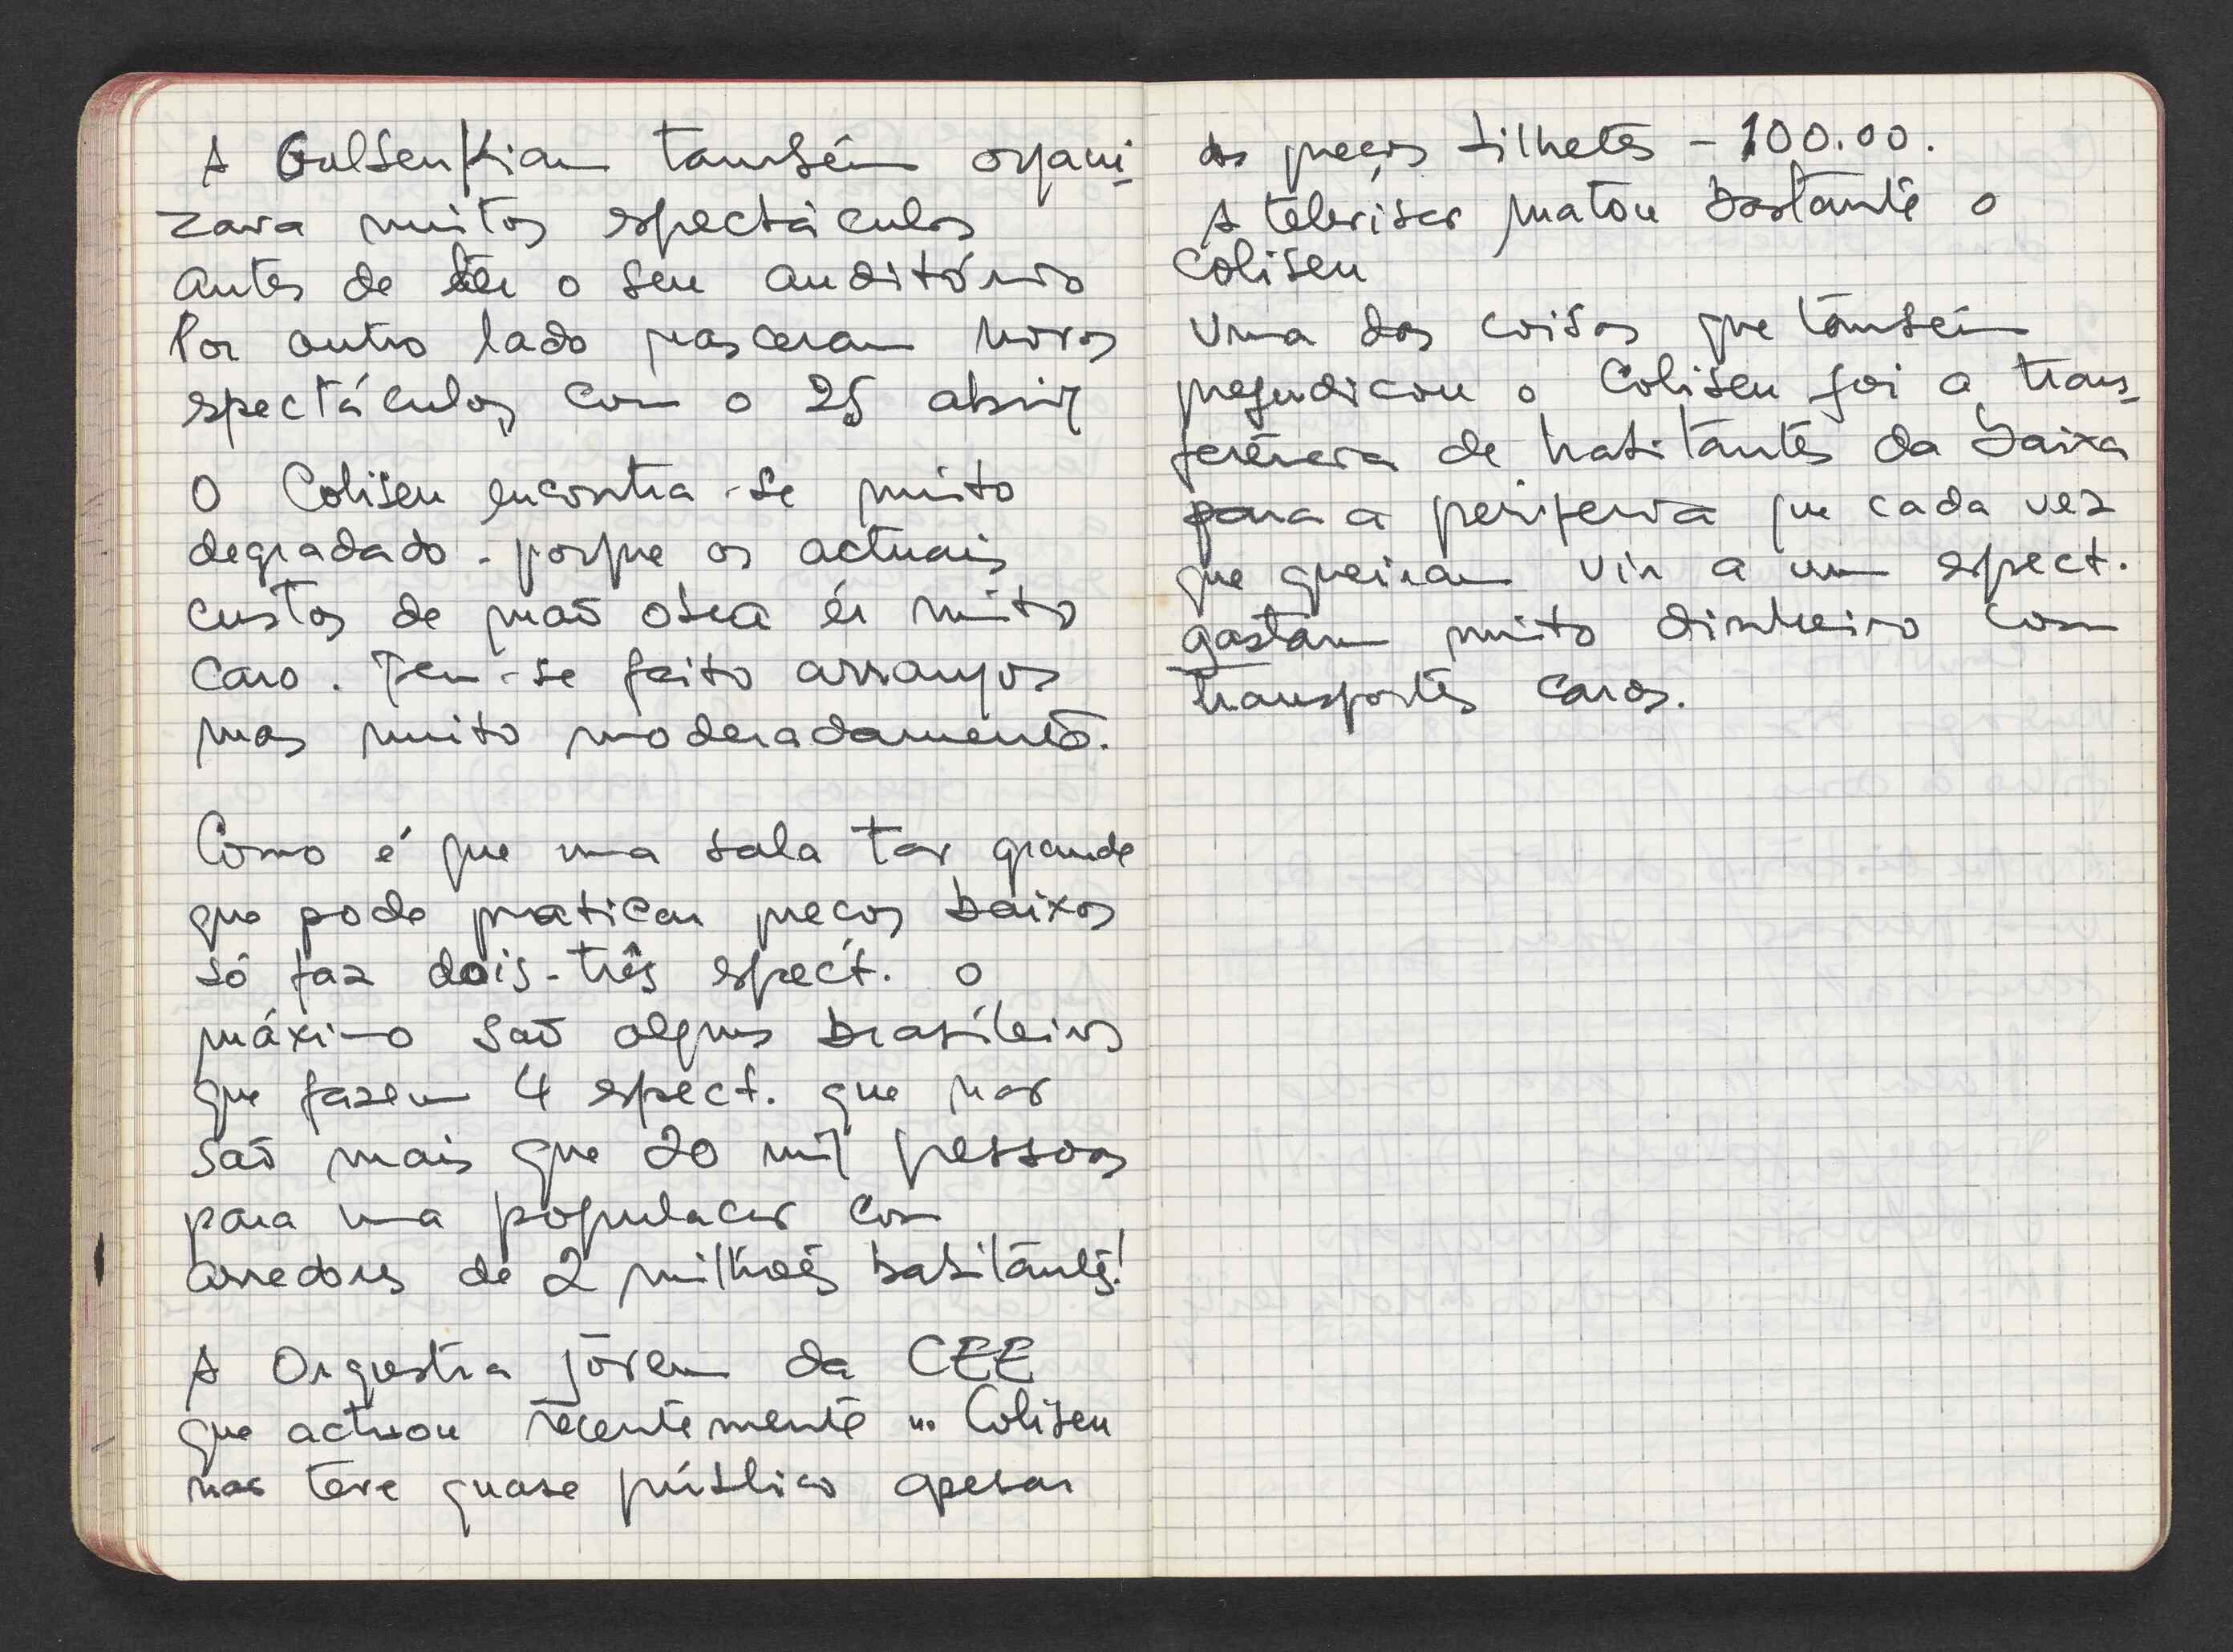 A Gulbenkian também organi-
zava muitos espectáculos
antes de ter o seu auditório
Por outro lado nasceram novos
espectáculos com o 25 abril
O Coliseu encontra-se muito
degradado - porque os actuais
custos de mão obra é muito
caro. Tem-se feito arranjos
mas muito moderadamente.
Como é que uma sala tão grande
que pode praticar preços baixos
só faz dois-três espect. o
máximo são alguns brasileiros
que fazem 4 espect. que não
são mais que 20 mil pessoas
para uma população com
arredores de 2 milhões habitantes!
A Orquestra jovem da CEE
que actuou recentemente no Coliseu
não teve quase público apesar
dos preços bilhetes - 100.00.
A televisão matou bastante o
Coliseu
Uma das coisas que também
prejudicou o Coliseu foi a trans-
ferência de habitantes da baixa
para a periferia que cada vez
que queiram vir a um espect.
gastam muito dinheiro com
transportes caros.